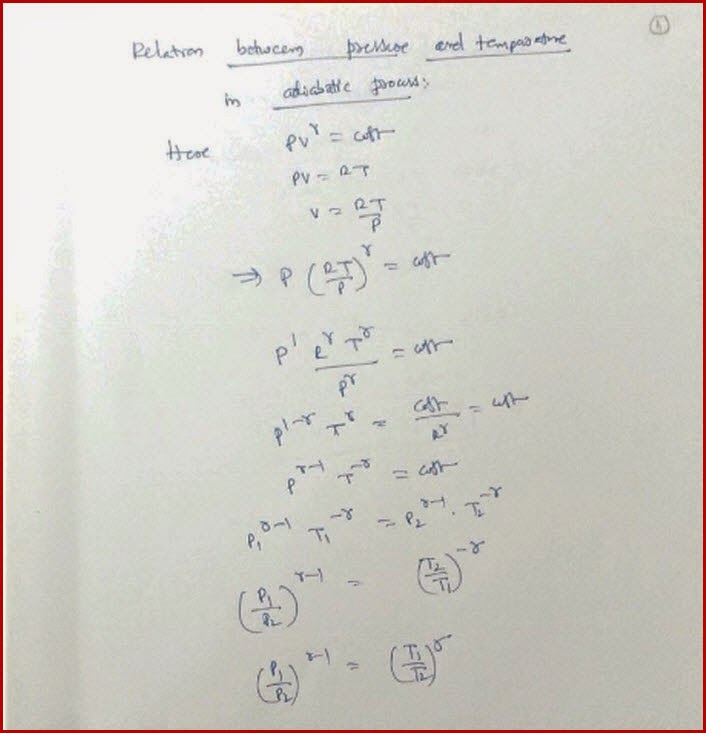 ①
Relation between pressure and temperature
in adiabatic process:
Here PV^γ = const
PV = RT
V = RT/P
⇒ P (RT/P)^γ = const
P^1 R^γ T^γ / P^γ = const
P^1-γ T^γ = const/R^γ = const
P^γ-1 T^-γ = const
P₁^γ-1 T₁^-γ = P₂^γ-1 . T₂^-γ
(P₁/P₂)^γ-1 = (T₂/T₁)^-γ
(P₁/P₂)^γ-1 = (T₁/T₂)^γ